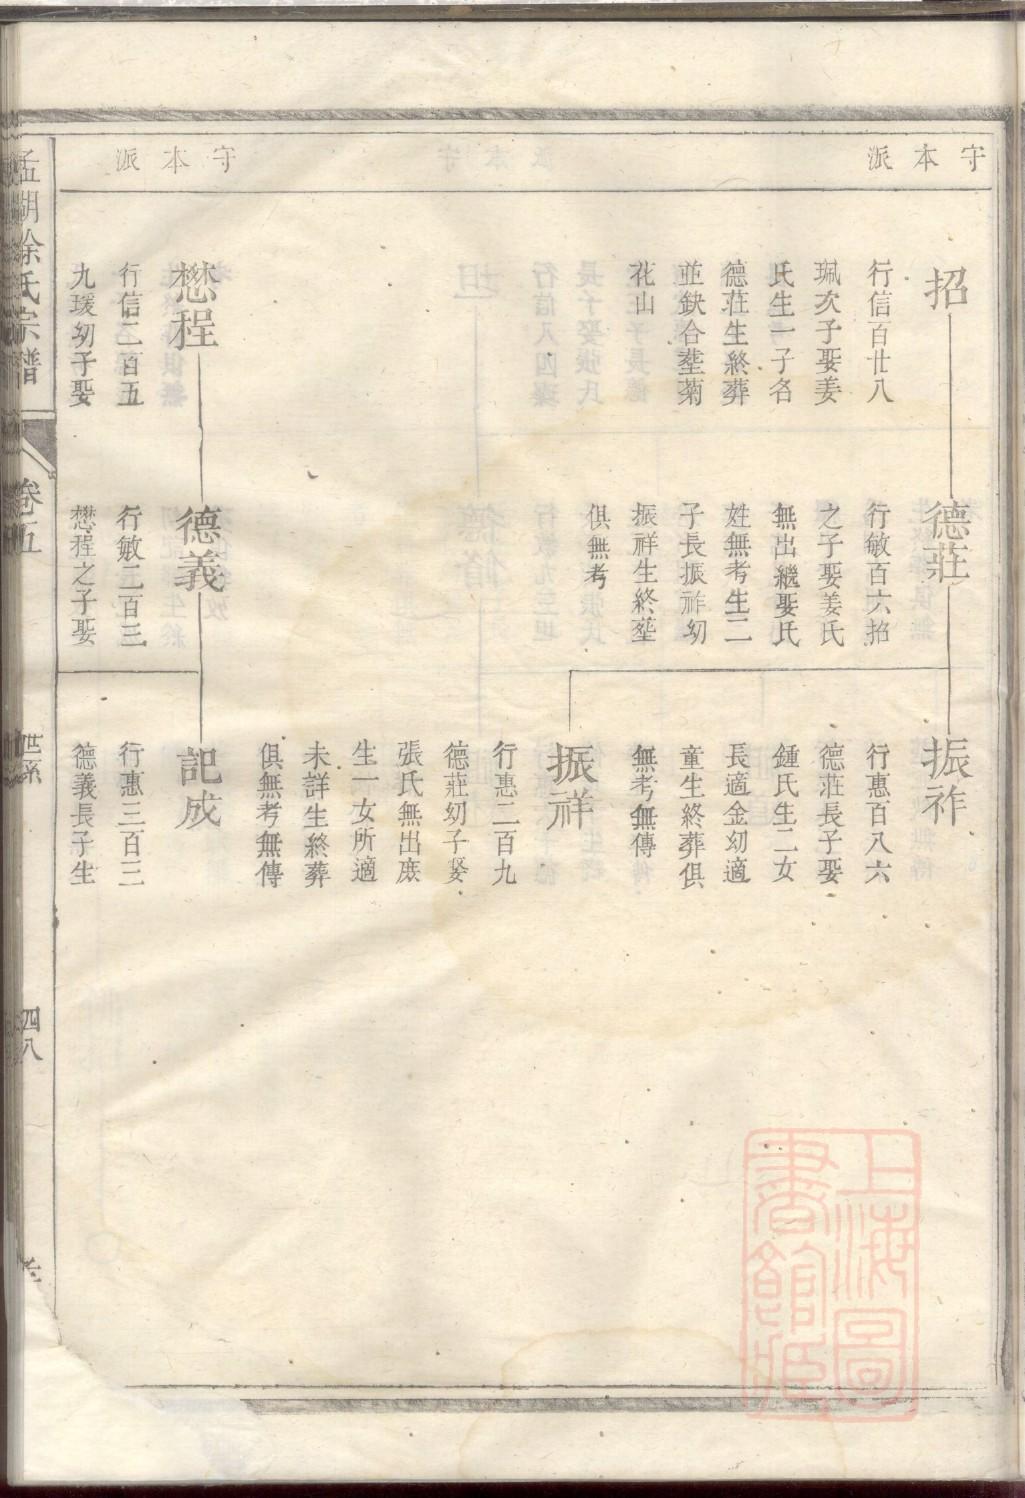 守本派
招
行信百廿八
珮次子娶姜
氏生一子名
德莊生終葬
並缺合塟菊
花山
德莊
行敏百六招
之子娶姜氏
無出繼娶氏
姓無考生二
子長振祚幼
振祥生終塟
俱無考
振祚
行惠百八六
德莊長子娶
鍾氏生二女
長適金幼適
童生終葬俱
無考無傳
振祥
行惠二百九
德莊幼子娶
張氏無出庶
生一女所適
未詳生終葬
俱無考無傳
守本派
懋程
行信二百五
九瑗幼子娶
德義
行敏二百三
懋程之子娶
記成
行惠三百三
德義長子生
孟湖徐氏宗譜
卷五
世系
四八
上海圖
書館藏